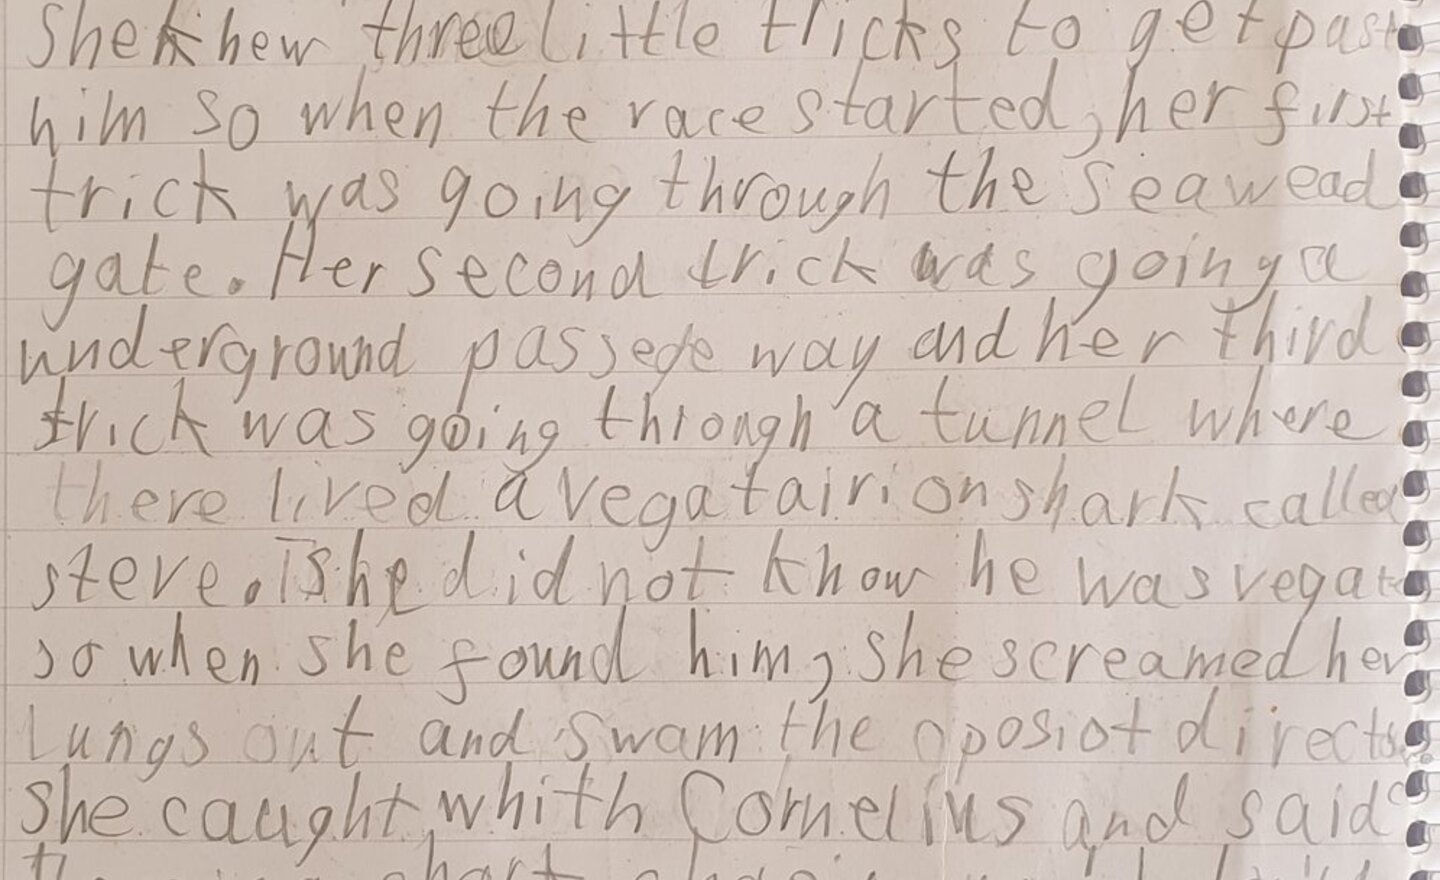 She knew three little tricks to get past
him so when the race started, her first
trick was going through the seawead
gate. Her second trick was going a
underground passege way and her third
trick was going through a tunnel where
there lived a vegatairion shark called
steve. She did not know he was vegat
so when she found him, she screamed her
lungs out and swam the oposiot
she caught whith Cornelius and said